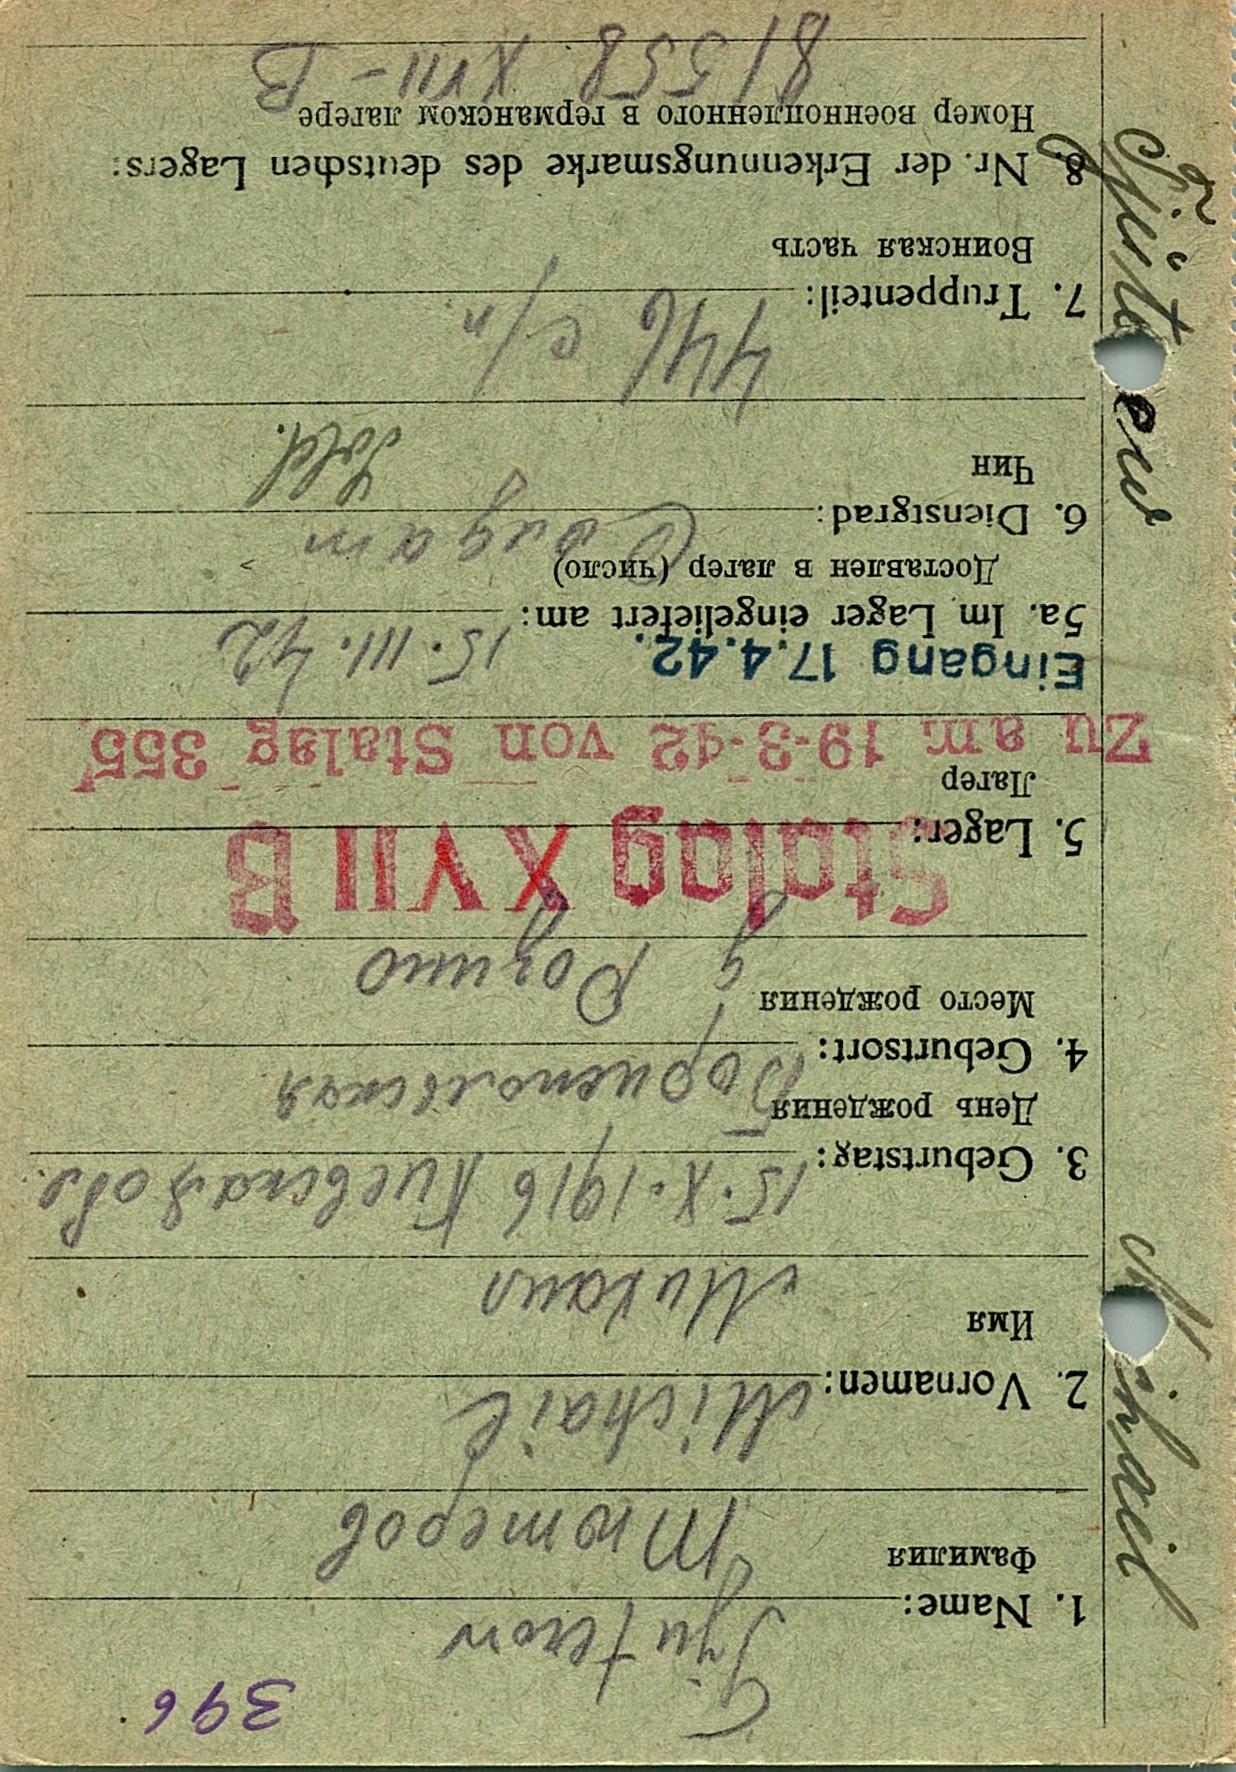 396
Tjuterow
1. Name:
Фамилия
Тютеров
Michail
2. Vornamen:
Имя
Михаил
15.X.1916 Киевская обл.
3. Geburtstag:
День рождения
Бориспольская
4. Geburtsort:
Место рождения
д Рогино
5. Lager:
Stalag XVII B
Лагер
Zu am 19-3-42 von Stalag 355
Eingang 17.4.42.
15.III.42
5a. Im Lager eingeliefert am:
Доставлен в лагер (число)
Солдат
6. Dienstgrad:
Чин
Sold.
446 с/п.
7. Truppenteil:
Воинская часть
8. Nr. der Erkennungsmarke des deutschen Lagers:
Номер военнопленного в германском лагере
81558 XVII-B
Michail